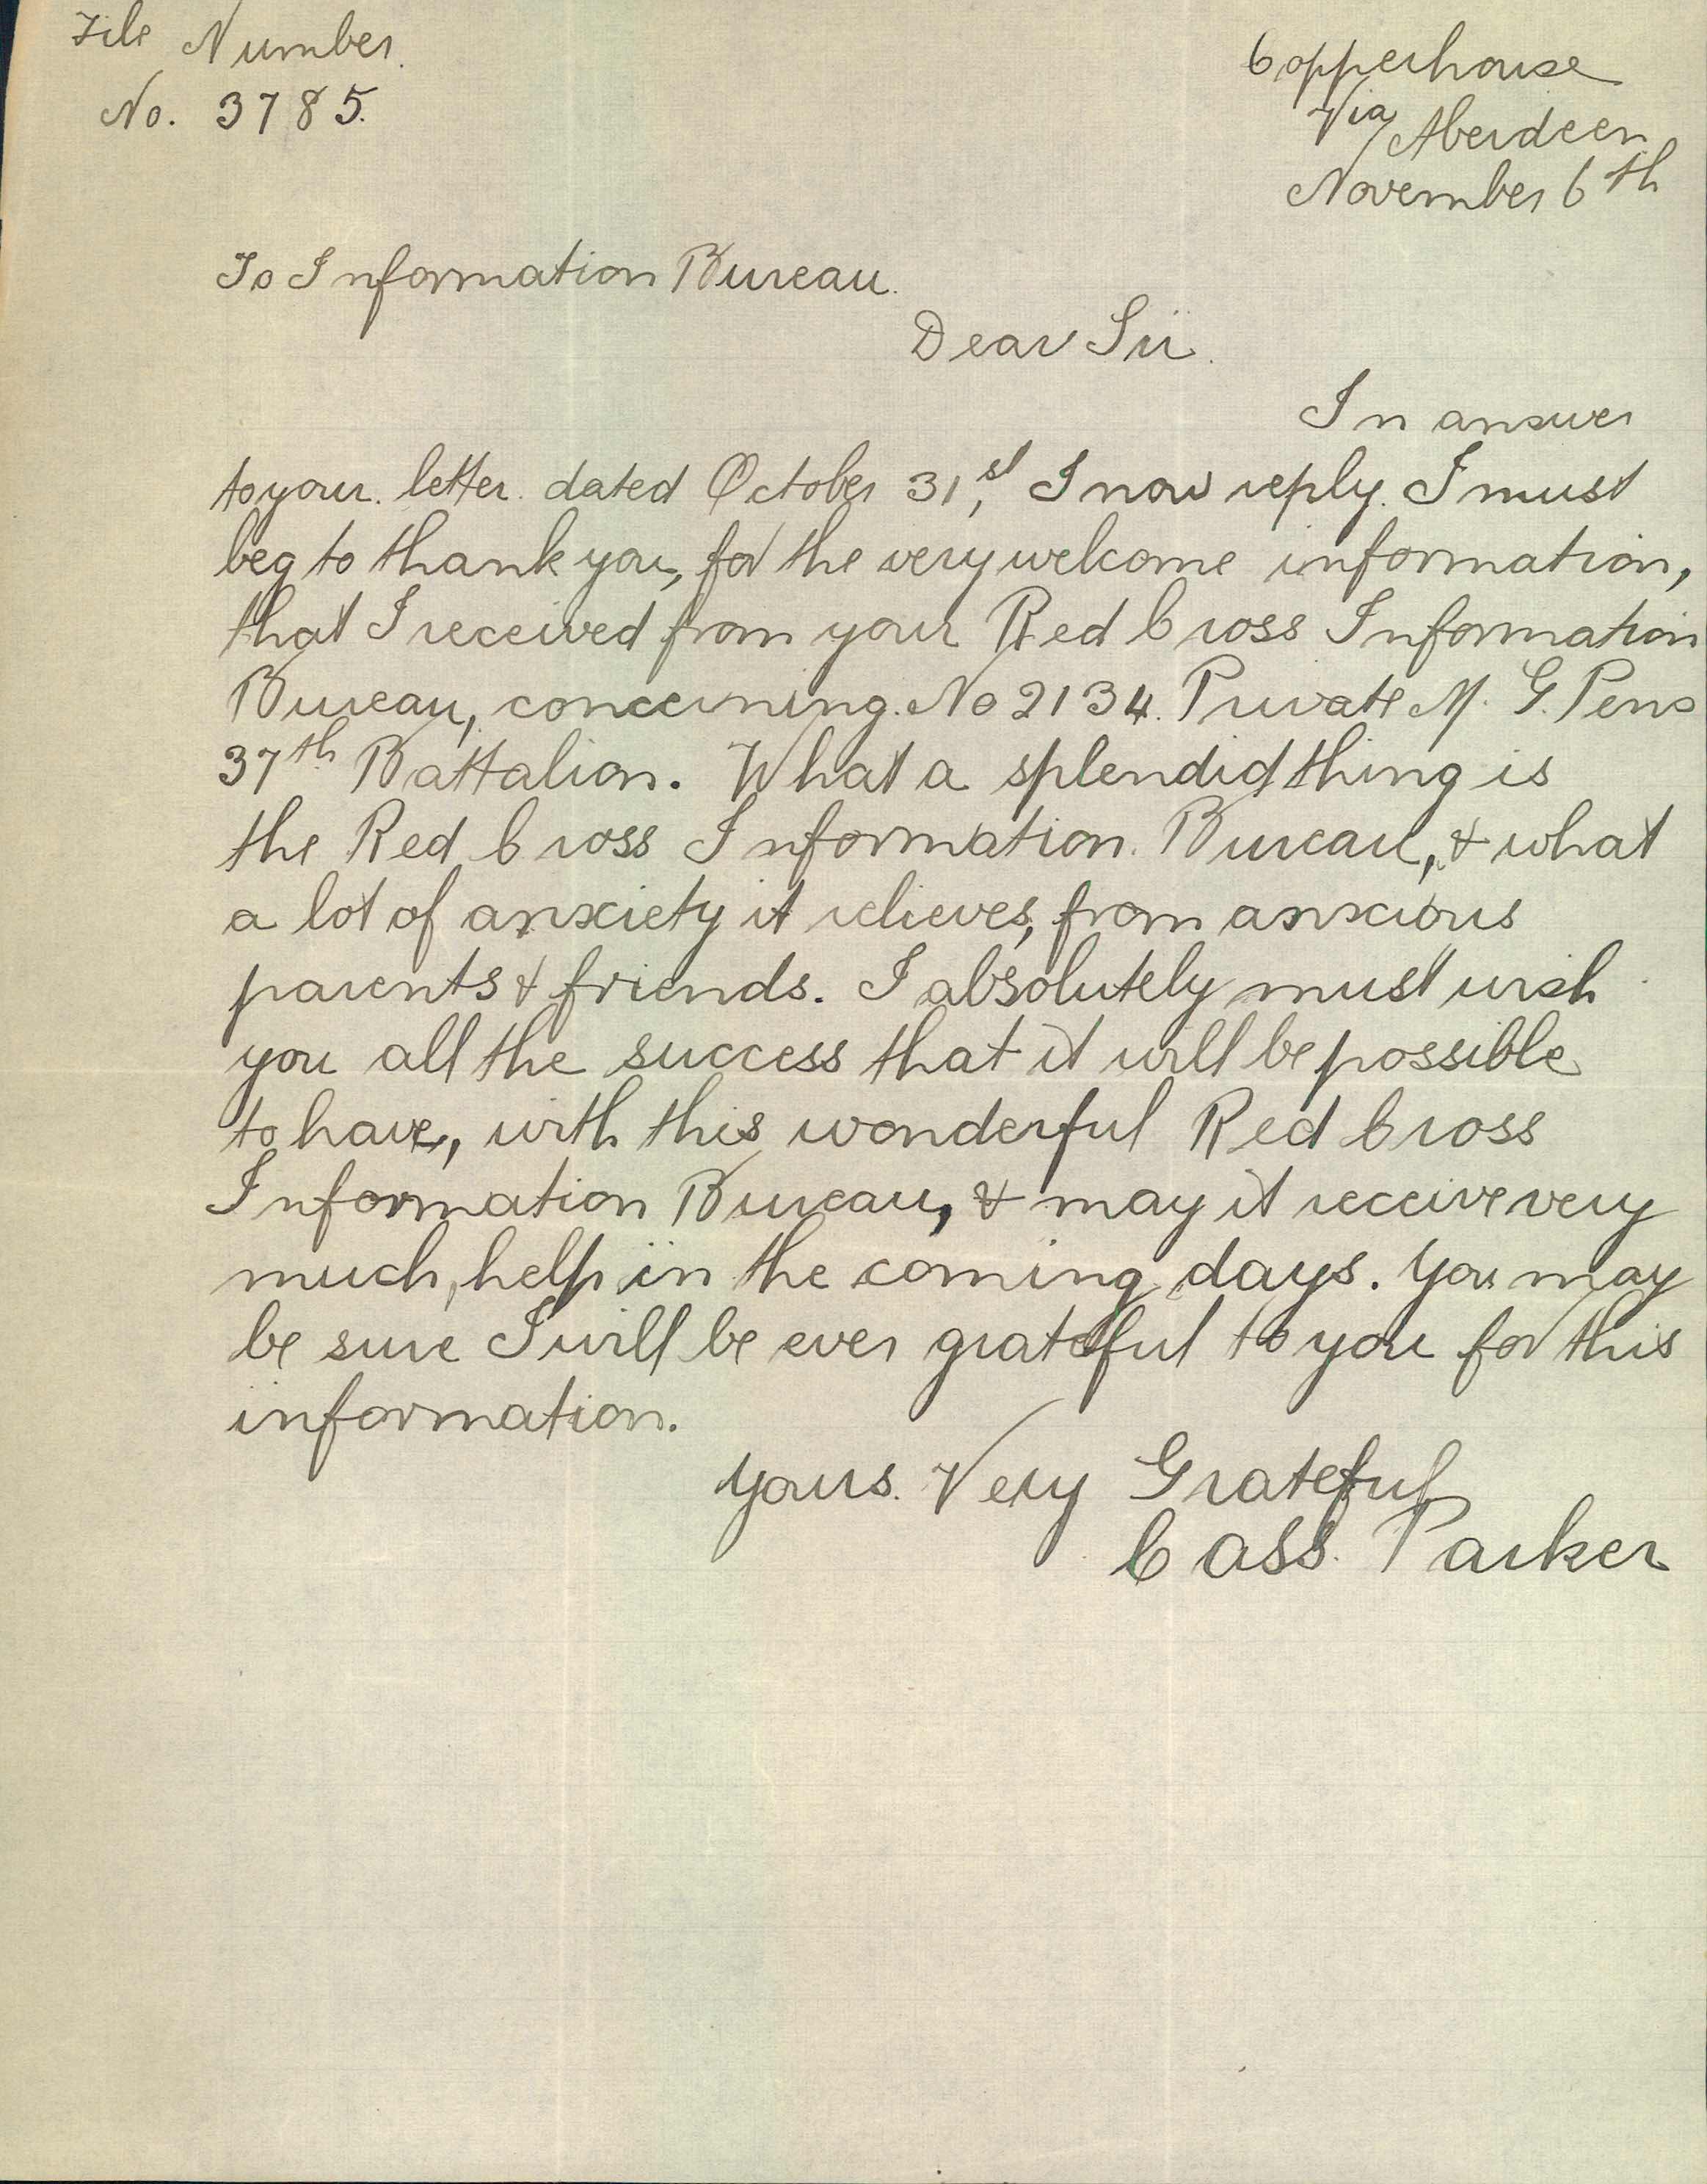 File Number.
No. 3785.
Copperhouse
Via Aberdeen
November 6th
To Information Bureau.
Dear Sir.
In answer
to your. letter. dated October 31st, I now reply. I must
beg to thank you, for the very welcome information,
that I received from your Red Cross Information
Bureau, concerning. No 2134. Private M. G. Pens
37th Battalion. What a splendid thing is
the Red Cross Information. Bureau, & what
a lot of anxiety it relieves, from anxious
parents & friends. I absolutely must wish
you all the success that it will be possible
to have, with this wonderful Red Cross
Information Bureau, & may it receive very
much, help in the coming days. You may
be sure I will be ever grateful to you for this
information.
Yours. Very Grateful
Cass. Parker